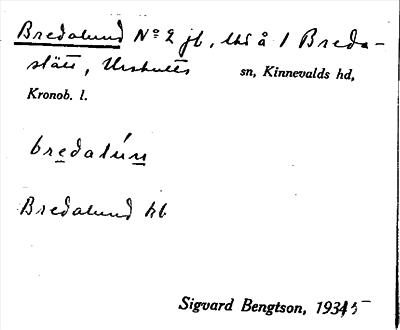 Bredalund No 2 jb, uts å 1 Breda-
stätt, Urshults sn, Kinnevalds hd,
Kronob. l.
bredalún
Bredalund hb
Sigvard Bengtson, 1935